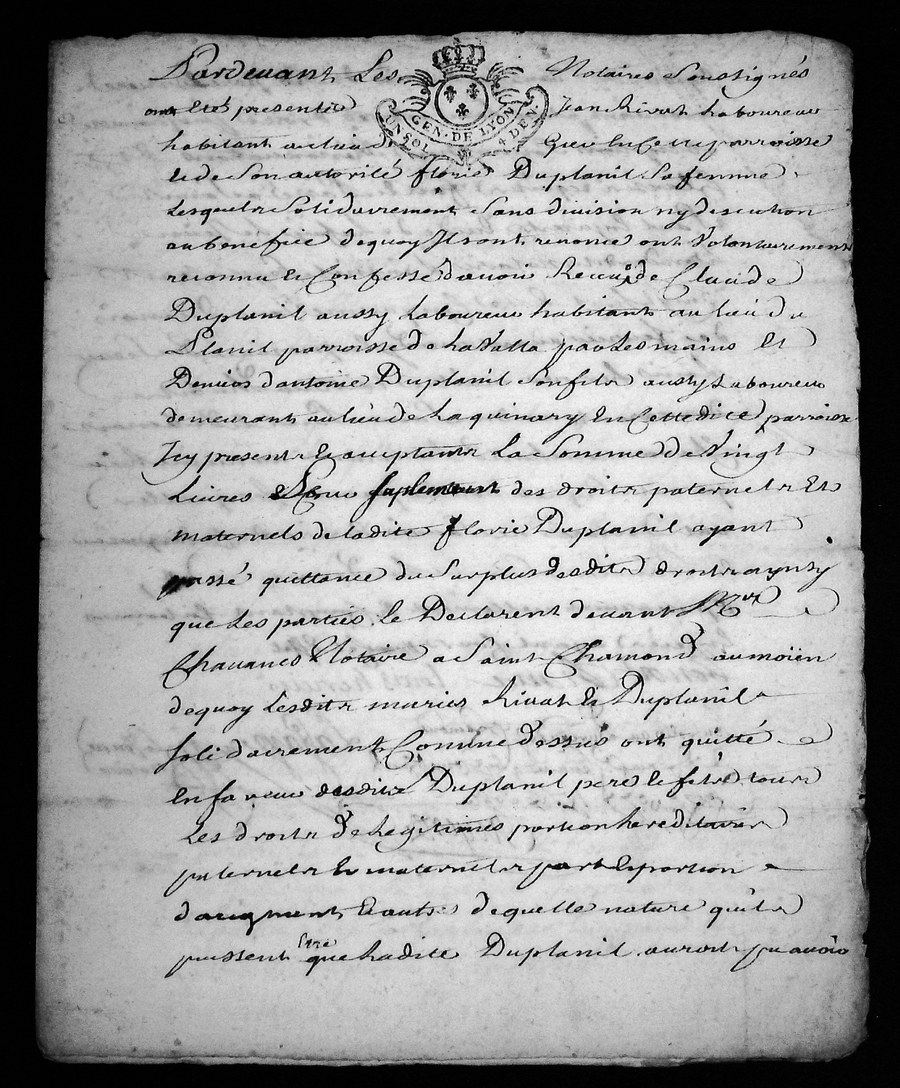 Pardevant Les Notaires Soussignés
GEN. DE LYON
UN SOL 4 DEN.
ont Eté presents Jean Rivat Laboureur
habitant au lieu de En Cette parroisse
Et de Son autorité florie Duplanil Sa femme
Lesquels Solidairement Sans division ny discution
au benefice dequoy Ils ont renoncé ont Volontairement
reconnu Et Confessé d'avoir Reccu de Claude
Duplanil aussy Laboureur habitant au lieu du
Planil parroisse de La Valla par Les mains Et
Deniers d'antoine Duplanil Son fils aussy Laboureur
demeurant au lieu de Laquinary En Cettedite parroisse
Icy present Et acceptant La Somme de Vingt
Livres Pour Suplement des droits paternels Et
maternels de ladite florie Duplanil ayant
passé quittance du Surplus desdits droits aynsy
que Les parties le Declarent devant Mre
Chavanes Notaire a Saint Chamond au moïen
dequoy Lesdits mariés Rivat Et Duplanil
Solidairement Comme dessus ont quitté
En faveur desdits Duplanil pere Et fils tous
Les droits de Legitimes portion hereditaires
paternels Et maternels part Et portion
d'augment Et auts: de quelle nature qu'ils
puissent Etre que Ladite Duplanil auroit pu avoir